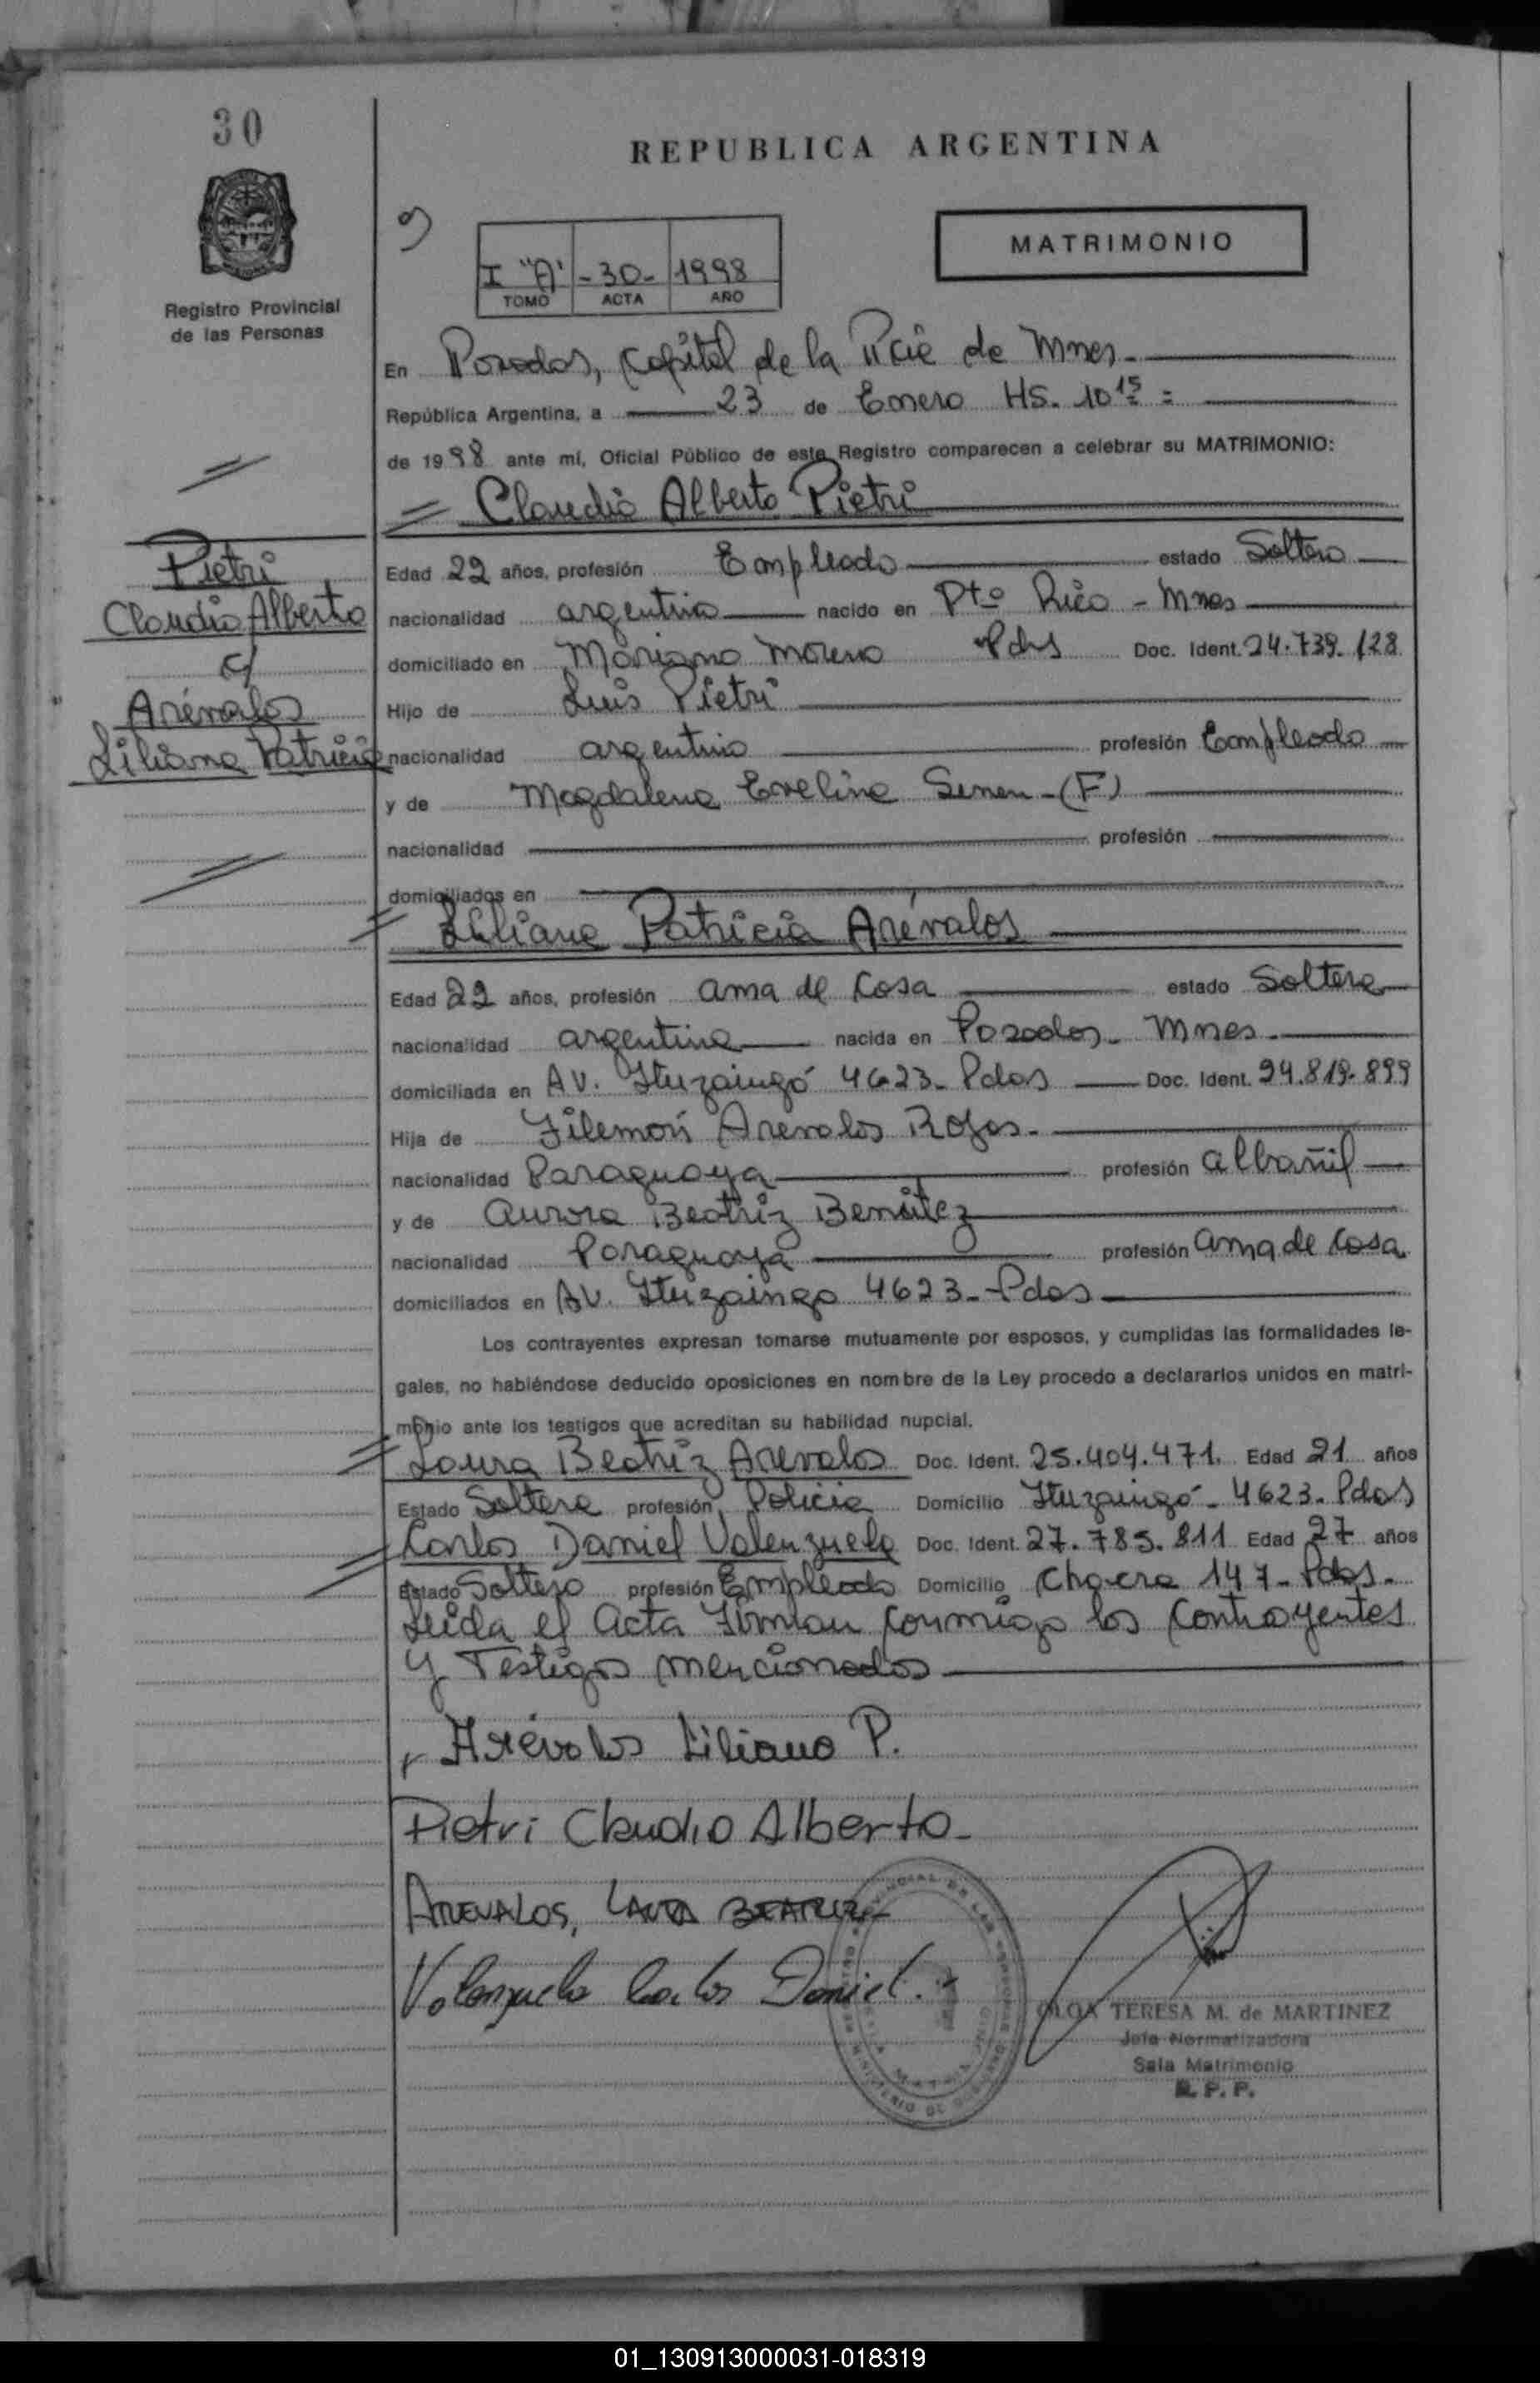 30
REPUBLICA ARGENTINA
MATRIMONIO
I "A" -30- 1998
TOMO ACTA AÑO
Registro Provincial
de las Personas
En Posadas, Capital de la Pcie de Mnes.
República Argentina, a 23 de Enero HS. 10 15 =
de 1998 ante mí, Oficial Público de este Registro comparecen a celebrar su MATRIMONIO:
Claudio Alberto Pietri
Pietri
Claudio Alberto
c/
Arévalos
Liliana Patricia
Edad 22 años, profesión Empleado estado Soltero
nacionalidad argentino nacido en Pto Rico - Mnes
domiciliado en Mariano Moreno Pdas Doc. Ident. 24.739.128
Hijo de Luis Pietri
nacionalidad argentino profesión Empleado
y de Magdalena Evelina - (F)
nacionalidad profesión
domiciliados en
Liliana Patricia Arévalos
Edad 22 años, profesión ama de Casa estado Soltera
nacionalidad argentina nacida en Posadas - Mnes.
domiciliada en AV. Ituzaingó 4623 - Pdas Doc. Ident. 24.819.899
Hija de Filemón Arevalos Rojas.
nacionalidad Paraguaya profesión albañil
y de Aurora Beatriz Benítez
nacionalidad Paraguaya profesión ama de Casa
domiciliados en AV. Ituzaingo 4623 - Pdas
Los contrayentes expresan tomarse mutuamente por esposos, y cumplidas las formalidades le-
gales, no habiéndose deducido oposiciones en nombre de la Ley procedo a declararlos unidos en matri-
monio ante los testigos que acreditan su habilidad nupcial.
Laura Beatriz Arevalos Doc. Ident. 25.404.471. Edad 21 años
Estado Soltera profesión Policia Domicilio Ituzaingó - 4623 - Pdas
Carlos Daniel Valenzuela Doc. Ident. 27.785.811 Edad 27 años
Estado Soltero profesión Empleado Domicilio Chacra 147 - Pdas.
Leída el Acta Firman conmigo los Contrayentes
y Testigos mencionados
Arévalos Liliana P.
Pietri Claudio Alberto
AREVALOS, LAURA BEATRIZ
Valenzuela Carlos Daniel.
OLGA TERESA M. de MARTINEZ
Jefa Normatizadora
Sala Matrimonio
R. P. P.
01_130913000031-018319